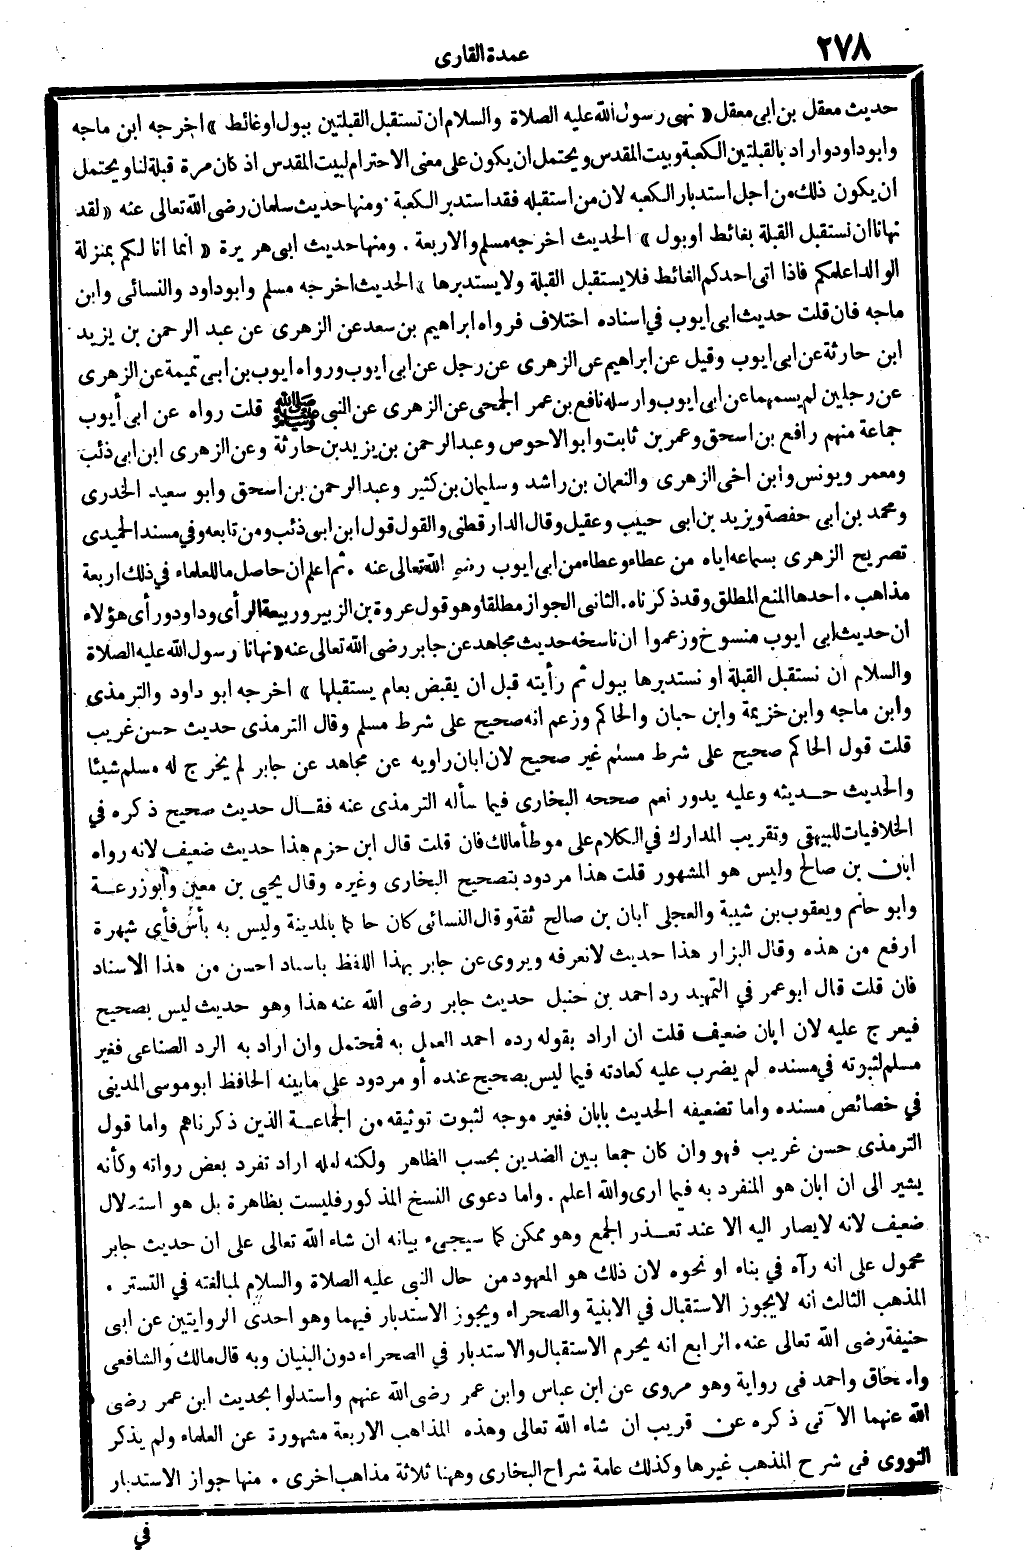 ٢٧٨
عمدة القارى
حديث معقل بن ابى معقل « نهى رسول الله عليه الصلاة والسلام ان تستقبل القبلتين ببول اوغائط » اخرجه ابن ماجه
وابو داود واراد بالقبلتين الكعبة وبيت المقدس ويحتمل ان يكون على معنى الاحترام لبيت المقدس اذ كان مرة قبلة لنا ويحتمل
ان يكون ذلك من اجل استدبار الكعبه لان من استقبله فقد استدبر الكعبة . ومنها حديث سلمان رضى الله تعالى عنه « لقد
نهانا ان نستقبل القبلة بغائط اوبول » الحديث اخرجه مسلم والاربعة . ومنها حديث ابى هريرة « انما انا لكم بمنزلة
الوالد اعلمكم فاذا اتى احدكم الغائط فلا يستقبل القبلة ولا يستدبرها » الحديث اخرجه مسلم وابو داود والنسائى وابن
ماجه فان قلت حديث ابى ايوب فى اسناده اختلاف فرواه ابراهيم بن سعد عن الزهرى عن عبد الرحمن بن يزيد
ابن حارثة عن ابى ايوب وقيل عن ابراهيم عن الزهرى عن رجل عن ابى ايوب ورواه ايوب بن ابى تميمة عن الزهرى
عن رجلين لم يسمهما عن ابى ايوب وارسله نافع بن عمر الجمحى عن الزهرى عن النبى ﷺ قلت رواه عن ابى أيوب
جماعة منهم رافع بن اسحق وعمر بن ثابت وابو الاحوص وعبد الرحمن بن يزيد بن حارثة وعن الزهرى ابن ابى ذئب
ومعمر ويونس وابن اخى الزهرى والنعمان بن راشد وسليمان بن كثير وعبد الرحمن بن اسحق وابو سعيد الخدرى
ومحمد بن ابى حفصة ويزيد بن ابى حبيب وعقيل وقال الدارقطنى والقول قول ابن ابى ذئب ومن تابعه وفى مسند الحميدى
تصريح الزهرى بسماعه اياه من عطاء وعطاء من ابى ايوب رضى الله تعالى عنه . ثم اعلم ان حاصل ما للعلماء فى ذلك اربعة
مذاهب . احدها المنع المطلق وقد ذكرناه . الثانى الجواز مطلقا وهو قول عروة بن الزبير وربيعة الرأى وداود ورأى هؤلاء
ان حديث ابى ايوب منسوخ وزعموا ان ناسخه حديث مجاهد عن جابر رضى الله تعالى عنه « نهانا رسول الله عليه الصلاة
والسلام ان نستقبل القبلة او نستدبرها ببول ثم رأيته قبل ان يقبض بعام يستقبلها » اخرجه ابو داود والترمذى
وابن ماجه وابن خزيمة وابن حبان والحاكم وزعم انه صحيح على شرط مسلم وقال الترمذى حديث حسن غريب
قلت قول الحاكم صحيح على شرط مسلم غير صحيح لان ابان راويه عن مجاهد عن جابر لم يخرج له مسلم شيئا
والحديث حديثه وعليه يدور نعم صححه البخارى فيما سأله الترمذى عنه فقال حديث صحيح ذكره فى
الخلافيات للبيهقى وتقريب المدارك فى الكلام على موطأ مالك فان قلت قال ابن حزم هذا حديث ضعيف لانه رواه
ابان بن صالح وليس هو المشهور قلت هذا مردود بتصحيح البخارى وغيره وقال يحيى بن معين وأبو زرعة
وابو حاتم ويعقوب بن شيبة والعجلى ابان بن صالح ثقة وقال النسائى كان حاكما بالمدينة وليس به بأس فأى شهرة
ارفع من هذه وقال البزار هذا حديث لانعرفه ويروى عن جابر بهذا اللفظ باسناد احسن من هذا الاسناد
فان قلت قال ابو عمر فى التمهيد رد احمد بن حنبل حديث جابر رضى الله عنه هذا وهو حديث ليس بصحيح
فيعرج عليه لان ابان ضعيف قلت ان اراد بقوله رده احمد العمل به فمحتمل وان اراد به الرد الصناعى فغير
مسلم لثبوته فى مسنده لم يضرب عليه كعادته فيما ليس بصحيح عنده أو مردود على ما بينه الحافظ ابو موسى المدينى
فى خصائص مسنده واما تضعيفه الحديث بابان فغير موجه لثبوت توثيقه من الجماعة الذين ذكرناهم واما قول
الترمذى حسن غريب فهو وان كان جمعا بين الضدين بحسب الظاهر ولكنه لعله اراد تفرد بعض رواته وكأنه
يشير الى ان ابان هو المنفرد به فيما ارى والله اعلم . واما دعوى النسخ المذكور فليست بظاهرة بل هو استدلال
ضعيف لانه لا يصار اليه الا عند تعذر الجمع وهو ممكن كما سيجىء بيانه ان شاء الله تعالى على ان حديث جابر
محمول على انه رآه فى بناء او نحوه لان ذلك هو المعهود من حال النبى عليه الصلاة والسلام لمبالغته فى التستر .
المذهب الثالث انه لا يجوز الاستقبال فى الابنية والصحراء ويجوز الاستدبار فيهما وهو احدى الروايتين عن ابى
حنيفة رضى الله تعالى عنه . الرابع انه يحرم الاستقبال والاستدبار فى الصحراء دون البنيان وبه قال مالك والشافعى
واسحاق واحمد فى رواية وهو مروى عن ابن عباس وابن عمر رضى الله عنهم واستدلوا بحديث ابن عمر رضى
الله عنهما الآتى ذكره عن قريب ان شاء الله تعالى وهذه المذاهب الاربعة مشهورة عن العلماء ولم يذكر
النووى فى شرح المذهب غيرها وكذلك عامة شراح البخارى وههنا ثلاثة مذاهب اخرى . منها جواز الاستدبار
فى